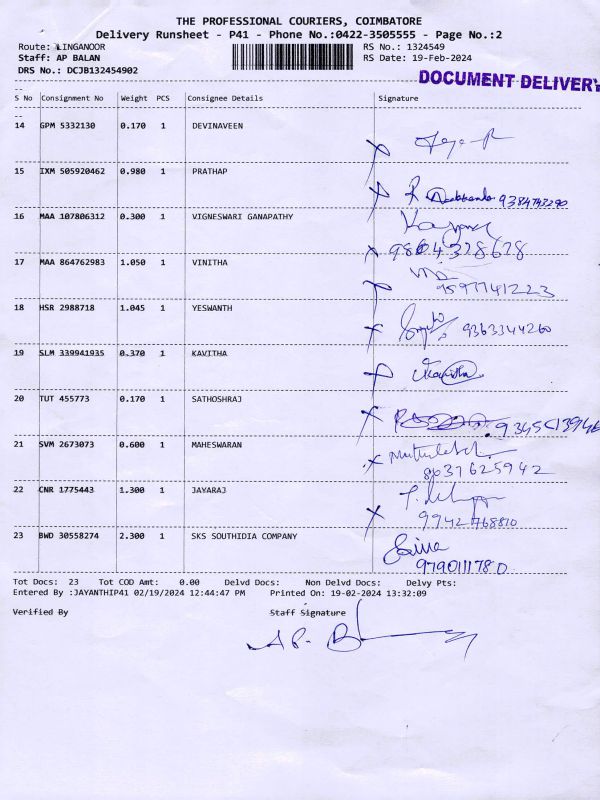 THE PROFESSIONAL COURIERS, COIMBATORE
Delivery Runsheet - P41 - Phone No.:0422-3505555 - Page No.:2
Route: LINGANOOR
RS No.: 1324549
Staff: AP BALAN
RS Date: 19-Feb-2024
DRS No.: DCJB132454902
DOCUMENT DELIVERY
S No Consignment No Weight PCS Consignee Details Signature
14 GPM 5332130 0.170 1 DEVINAVEEN
15 IXM 505920462 0.980 1 PRATHAP
9384743290
16 MAA 107806312 0.300 1 VIGNESWARI GANAPATHY
9804328678
17 MAA 864762983 1.050 1 VINITHA
9597741223
18 HSR 2988718 1.045 1 YESWANTH
9363344260
19 SLM 339941935 0.370 1 KAVITHA
Kavitha
20 TUT 455773 0.170 1 SATHOSHRAJ
21 SVM 2673073 0.600 1 MAHESWARAN
8637625942
22 CNR 1775443 1.300 1 JAYARAJ
9942768810
23 BWD 30558274 2.300 1 SKS SOUTHIDIA COMPANY
9790111780
Tot Docs: 23 Tot COD Amt: 0.00 Delvd Docs: Non Delvd Docs: Delvy Pts:
Entered By :JAYANTHIP41 02/19/2024 12:44:47 PM Printed On: 19-02-2024 13:32:09
Verified By Staff Signature
AP. B